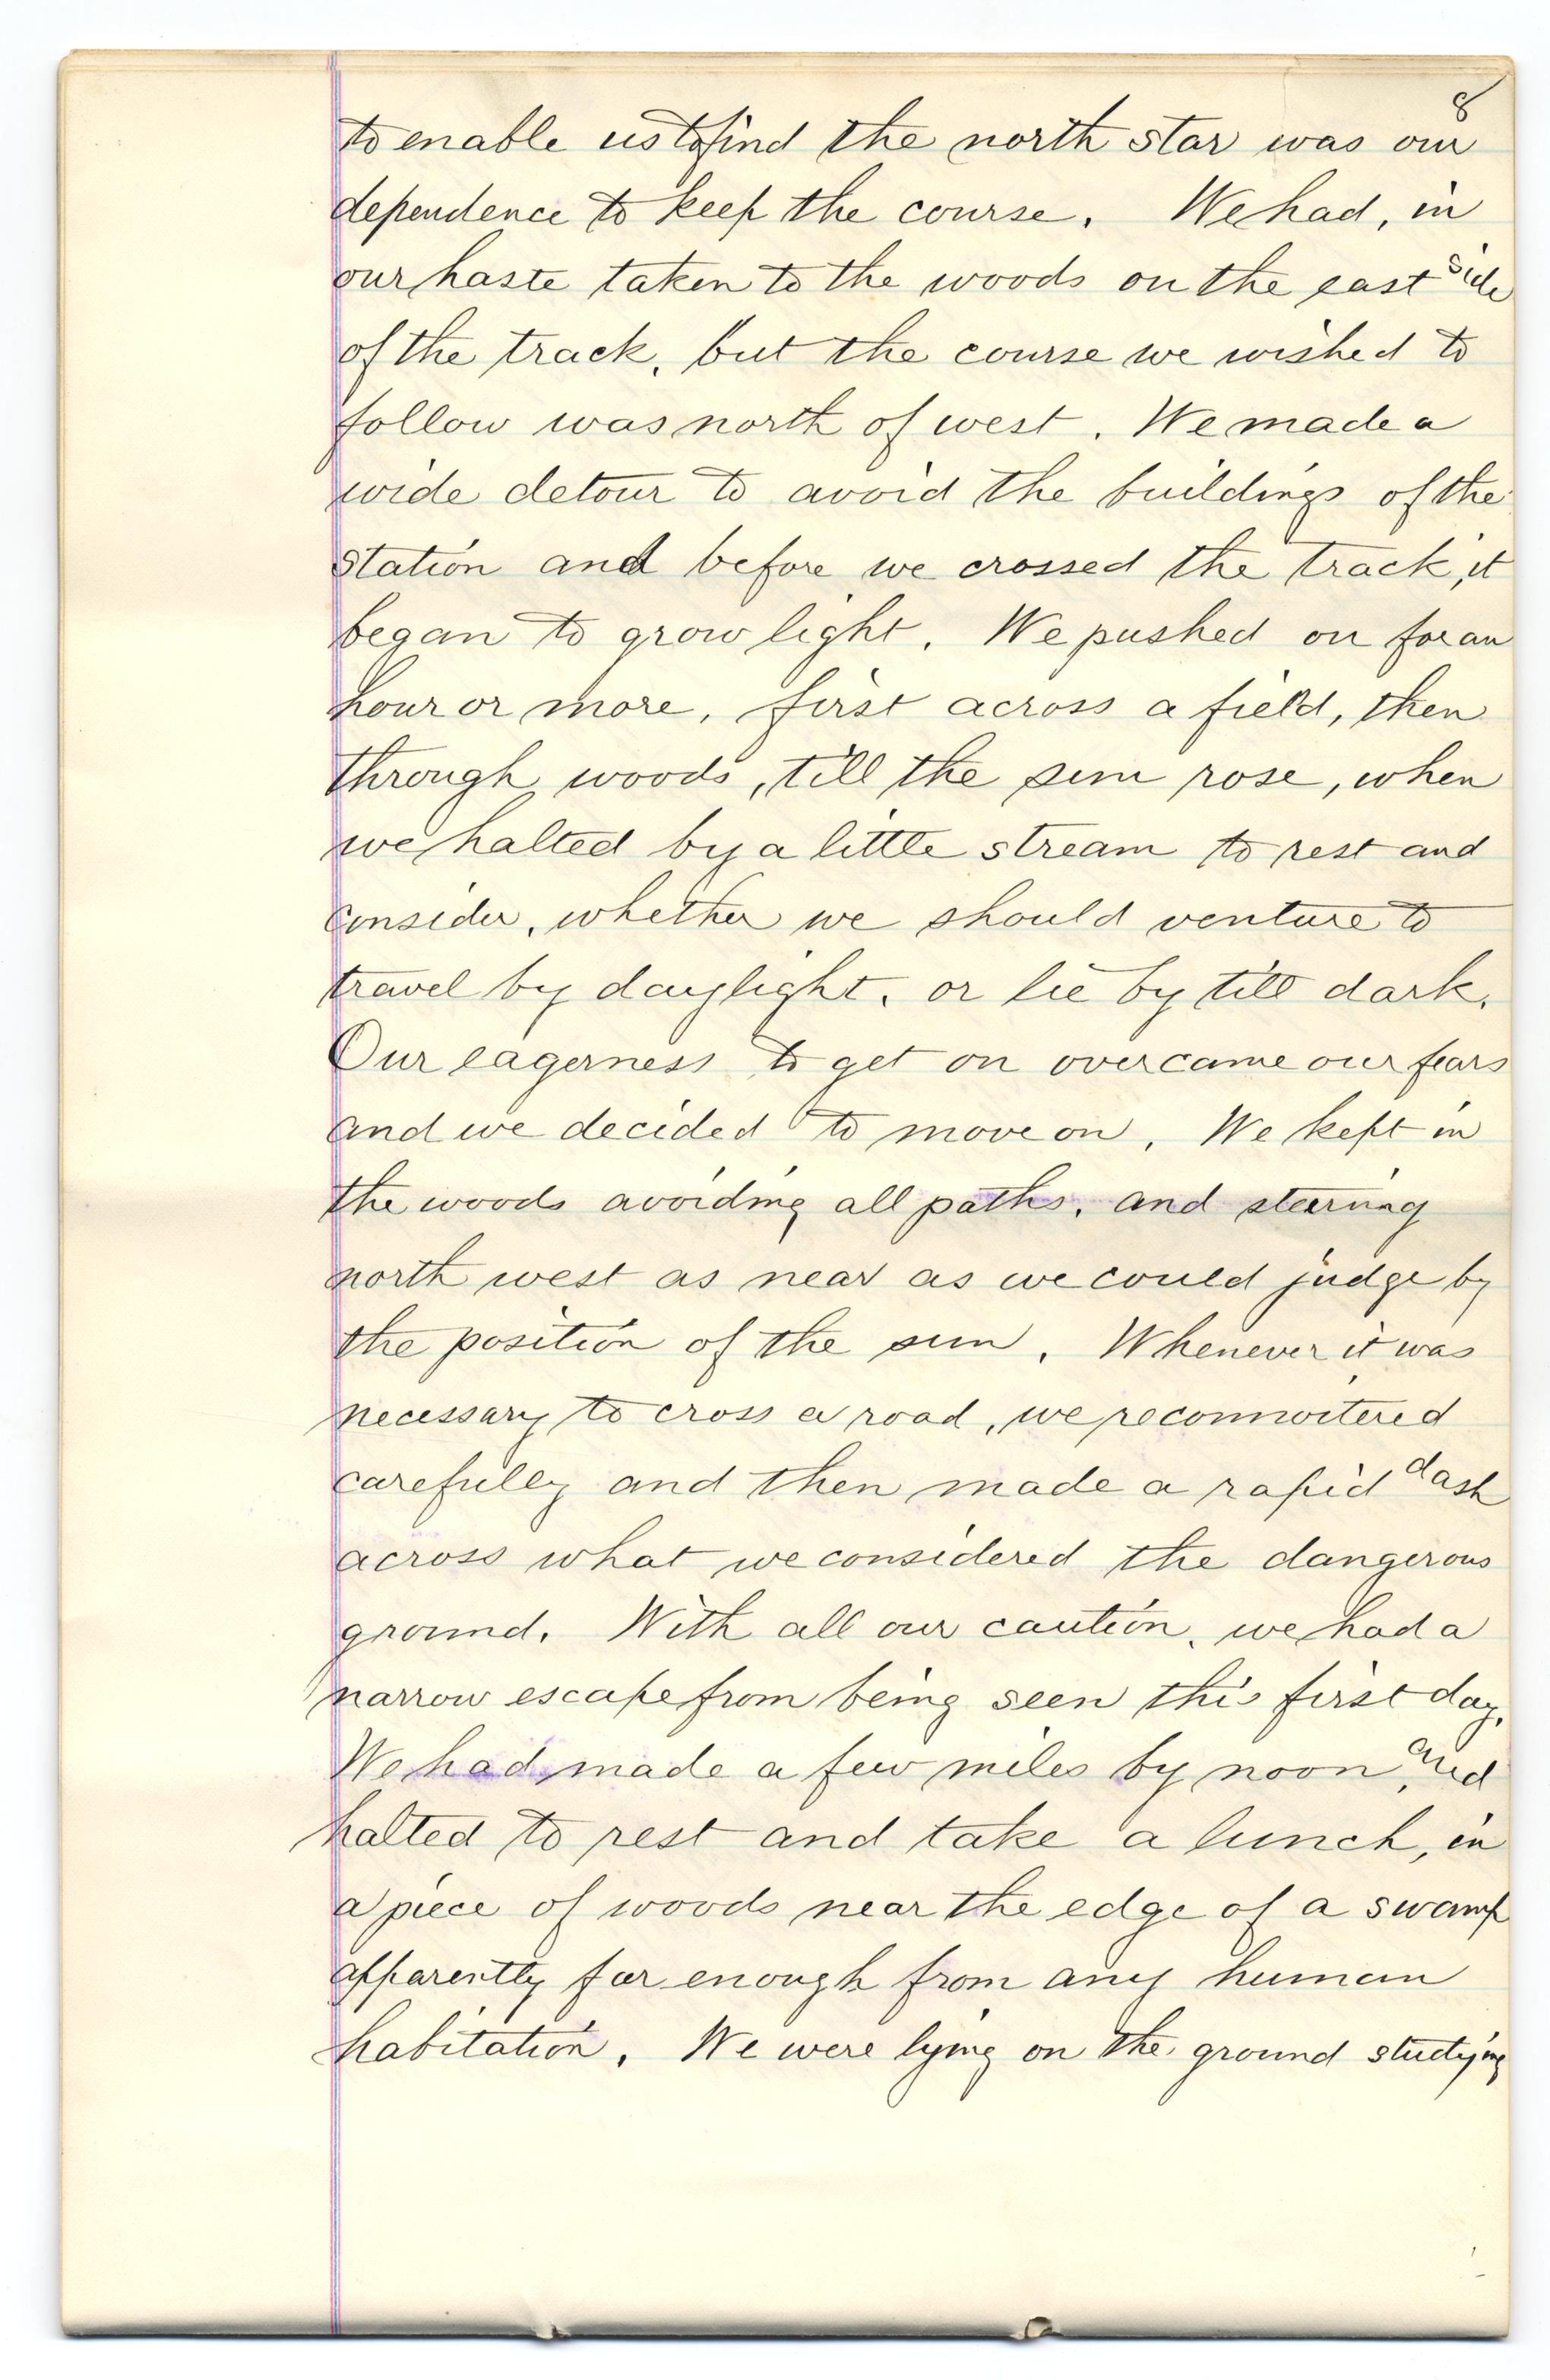 8
to enable us to find the north star was our
dependence to keep the course. We had, in
our haste taken to the woods on the east side
of the track, but the course we wished to
follow was north of west. We made a
wide detour to avoid the buildings of the
station and before we crossed the track, it
began to grow light. We pushed on for an
hour or more, first across a field, then
through woods, till the sun rose, when
we halted by a little stream to rest and
consider, whether we should venture to
travel by daylight, or lie by till dark.
Our eagerness to get on overcame our fears
and we decided to move on. We kept in
the woods avoiding all paths, and steering
north west as near as we could judge by
the position of the sun. Whenever it was
necessary to cross a road, we reconnoitered
carefully and then made a rapid dash
across what we considered the dangerous
ground. With all our caution, we had a
narrow escape from being seen this first day.
We had made a few miles by noon, and
halted to rest and take a lunch, in
a piece of woods near the edge of a swamp
apparently far enough from any human
habitation. We were lying on the ground studying